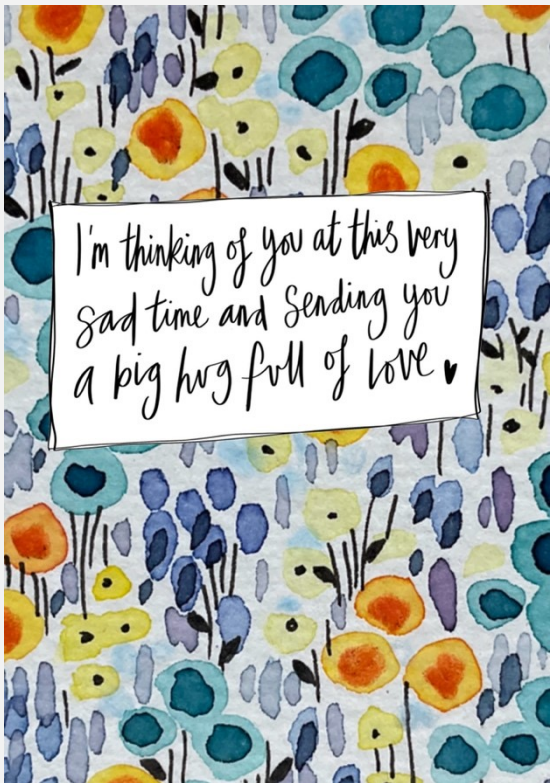 I'm thinking of you at this very
sad time and sending you
a big hug full of love